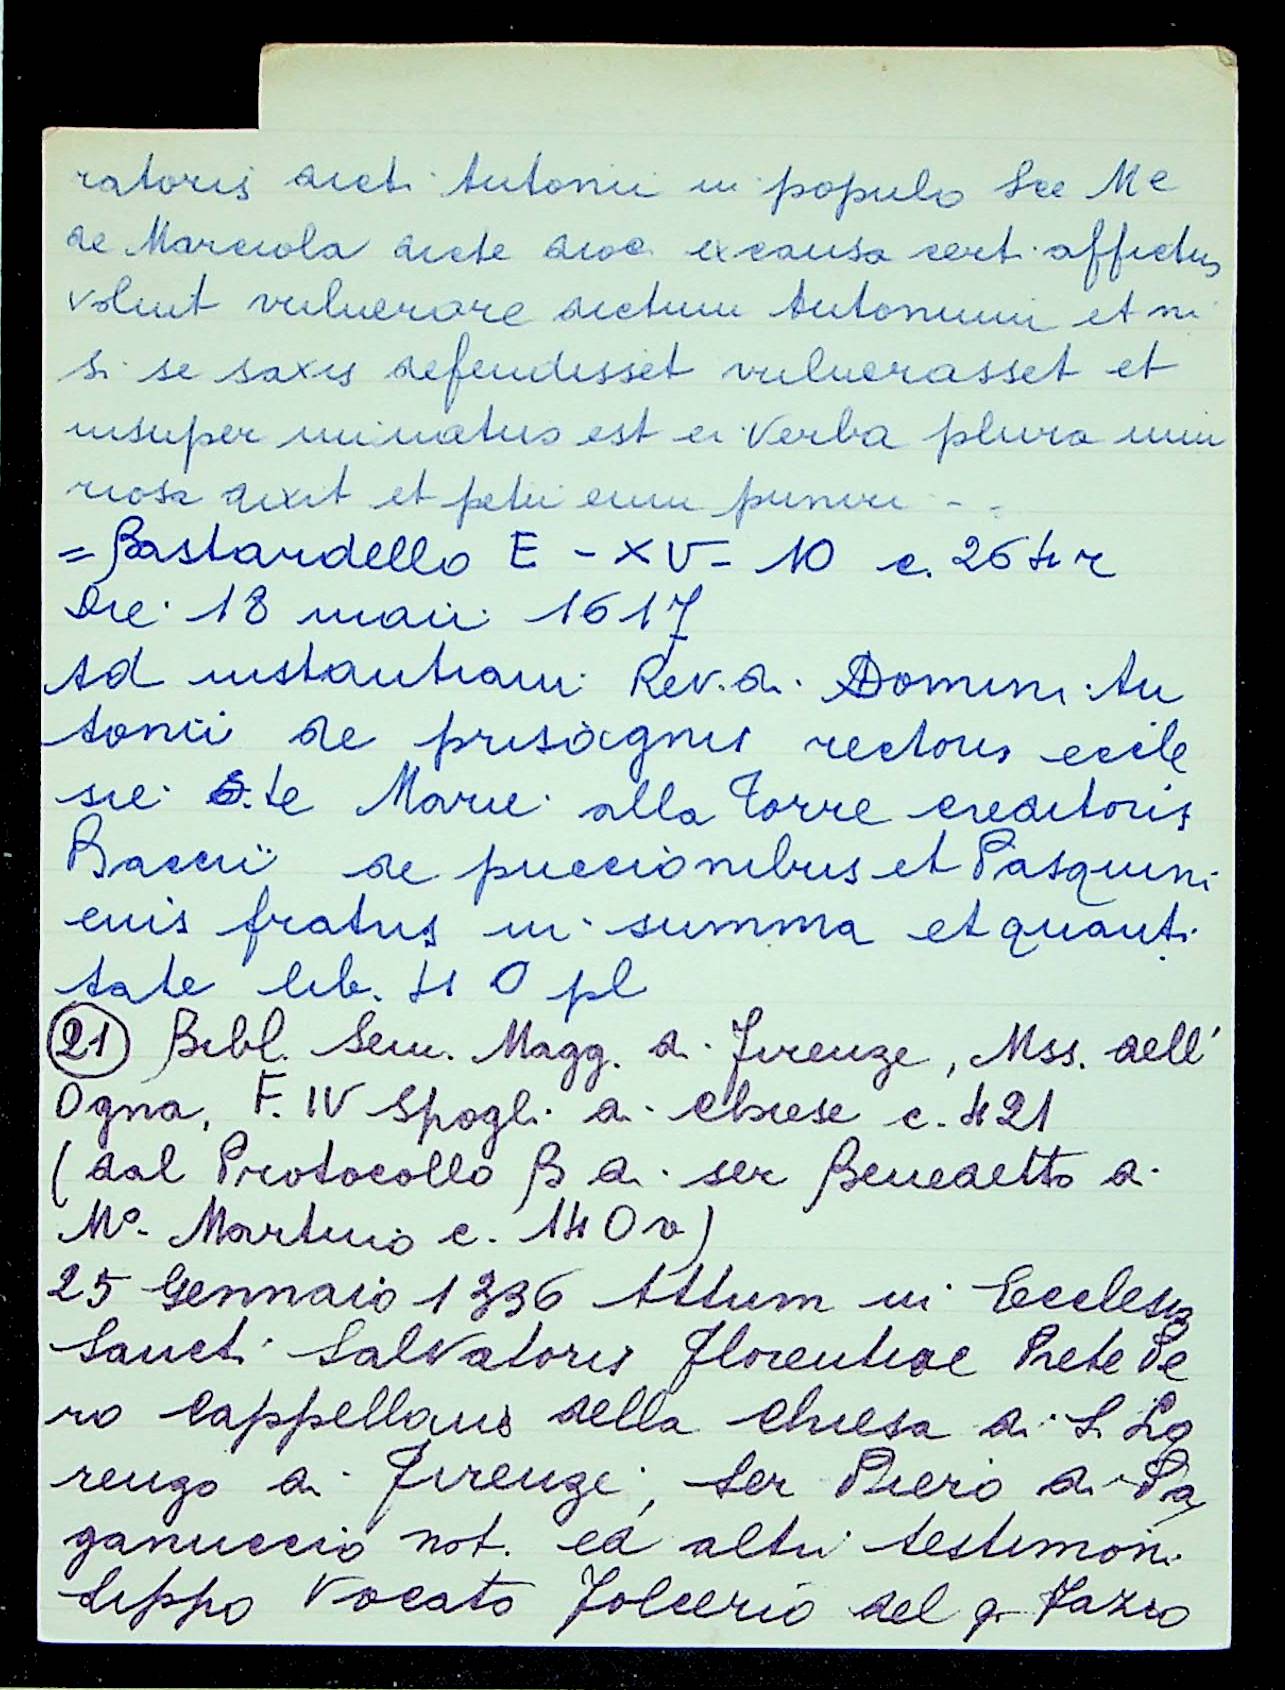 ratoris dicti Antonii in populo See Me
de Marciola dicte dioc. ex causa certi affictus
voluit vulnerare dictum Antonium et ni
si se saxis defendisset vulnerasset et
insuper minatus est ei verba plura iniu
riosa dixit et petii eum puniri - -
= Bastardello E - XV - 10 c. 26 4r
Die 18 maii 1617
Ad instantiam Rev.di Domini An
tonii de prisagnis rectoris eccle
sie S.te Marie alla Torre creditoris
Baccii de puccionibus et Pasquini
eius fratris in summa et quanti
tate lib. 40 pl
(21) Bibl. Sem. Magg. di Firenze, Mss. dell'
Ogna, F. IV Spogli di Chiese c. 421
(dal Protocollo B di ser Benedetto di
Mo. Martino c. 140v)
25 Gennaio 1336 Attum in Ecclesia
Sancti Salvatoris Florentiae Prete Pe
ro Cappellano della Chiesa di S. Lo
renzo di Firenze, Ser Piero di Pa
ganuccio not. ed altri testimoni
Lippo Vocato Folcerio del q. Fazio